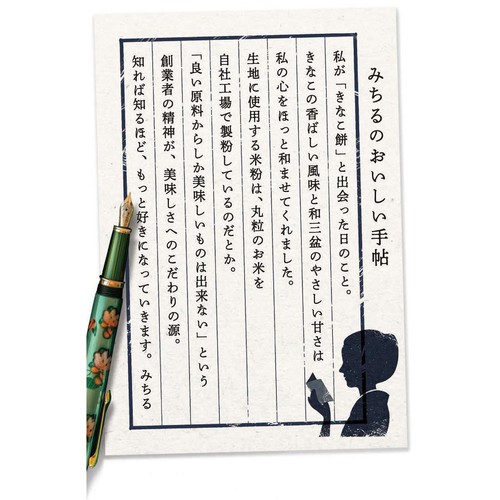 みちるのおいしい手帖
私が「きなこ餅」と出会った日のこと。
きなこの香ばしい風味と和三盆のやさしい甘さは
私の心をほっと和ませてくれました。
生地に使用する米粉は、丸粒のお米を
自社工場で製粉しているのだとか。
「良い原料からしか美味しいものは出来ない」という
創業者の精神が、美味しさへのこだわりの源。
知れば知るほど、もっと好きになっていきます。みちる